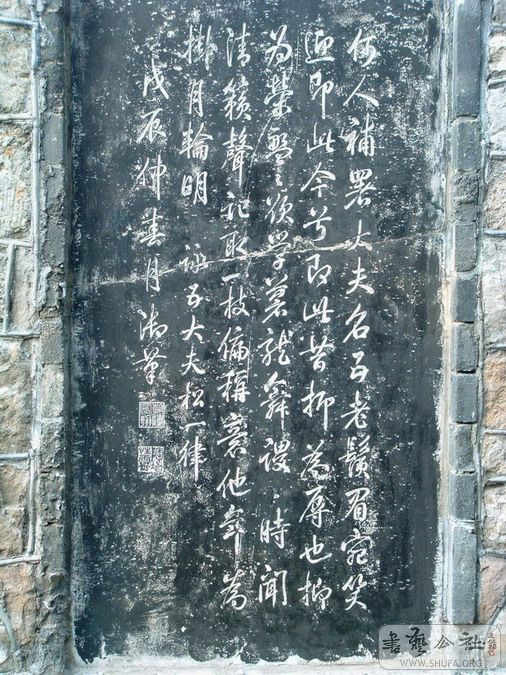 何人補署大夫名五老鬚眉宛笑
迎即此今兮即此昔抑為辱也抑
為榮盤々欲學蒼龍舞謖々時聞
清籟聲記取一枝偏稱意他年為
掛月輪明 詠五大夫松一律
戊辰仲春月御筆
書藝公社
WWW.SHUFA.ORG